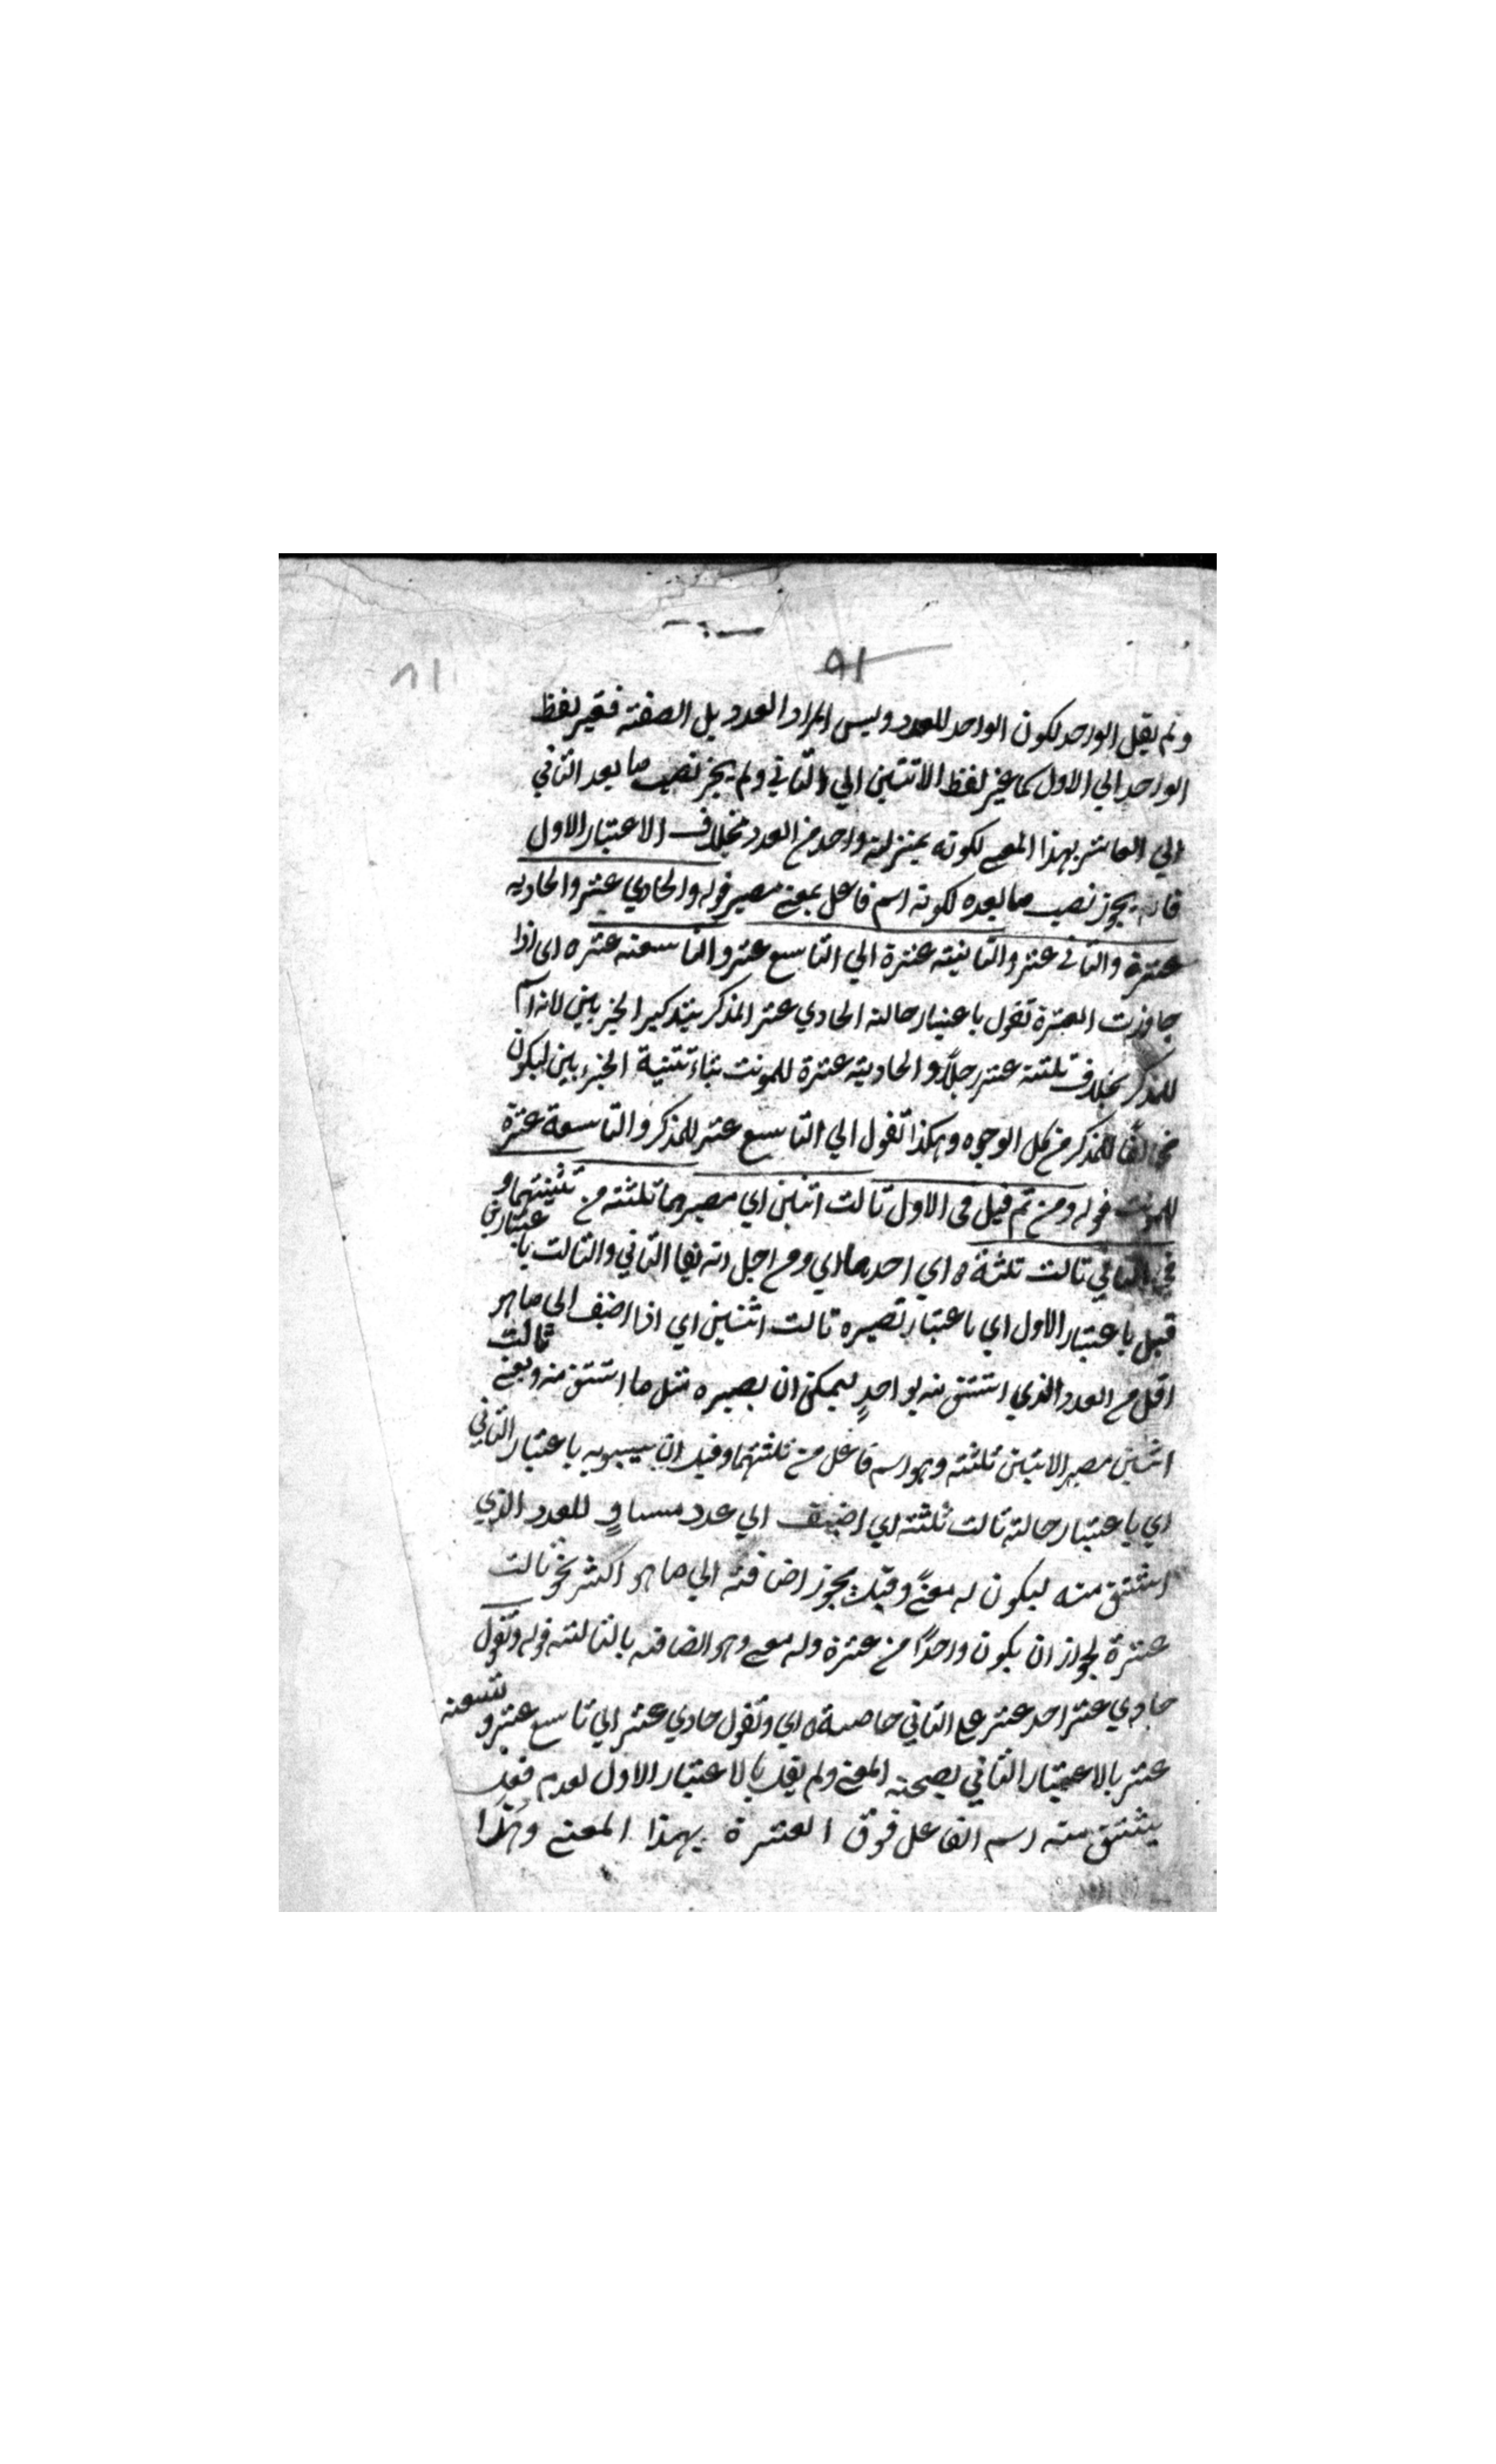 ٩١
٨١
ولم يقل الواحد لكون الواحد للعدد وليس المراد العدد بل الصفته فغير لفظ
الواحد الي الاول كما غير لفظ الاثنين الي الثاني ولم يجز نصب ما بعد الثاني
الي العاشر بهذا المعني لكونه بمنزلته واحد من العدد بخلاف الاعتبار الاول
فانه يجوز نصب ما بعده لكونه اسم فاعل بمعني مصير قوله والحادي عشر والحاديه
عشرة والثاني عشر والثانيته عشرة الي التاسع عشر والتاسعته عشره اي اذا
جاوزت العشرة تقول باعتبار حالته الحادي عشر المذكر بتذكير الجزيين لانه اسم
للمذكر بخلاف ثلثته عشر رجلاً والحاديته عشرة للمونث بتاء تثنية الجزءين ليكون
مخالفًا للمذكر من كل الوجوه وهكذا تقول الي التاسع عشر للمذكر والتاسعة عشرة
للمونث قوله ومن ثم قيل في الاول ثالث اثنين اي مصيرهما ثلثته من ثلثيتهما و
في الثاني ثالث ثلثة ه اي احدها اي ومن اجل انه يقا الثاني والثالث باعتبارين
قيل باعتبار الاول اي باعتبار تصيره ثالث اثنين اي اذا اضف الي ما هو
اقل من العدد الذي اشتق منه بواحدٍ ليمكن ان يصيره مثل ما اشتق منه وبمعني ثالث
اثنين مصير الاثنين ثلثته وهو اسم فاعل من ثلثتهما وقيل ان سيبويه باعتبار الثاني
اي باعتبار حالته ثالث ثلثته اي اضيف الي عدد مساوٍ للعدد الذي
اشتق منه ليكون له معنيً وقيل يجوز اضافته الي ما هو اكثر نحو ثالث
عشرة لجواز ان يكون واحدًا من عشرة وله معني وهو اتصافه بالثالثته قوله وتقول
حادي عشر احد عشر علي الثاني خاصة ه اي وتقول حادي عشر الي تاسع عشر وتسعته
عشر بالاعتبار الثاني لصحته المعني ولم يقل بالاعتبار الاول لعدم فعل
يشتق منه اسم الفاعل فوق العشرة بهذا المعني وهذا